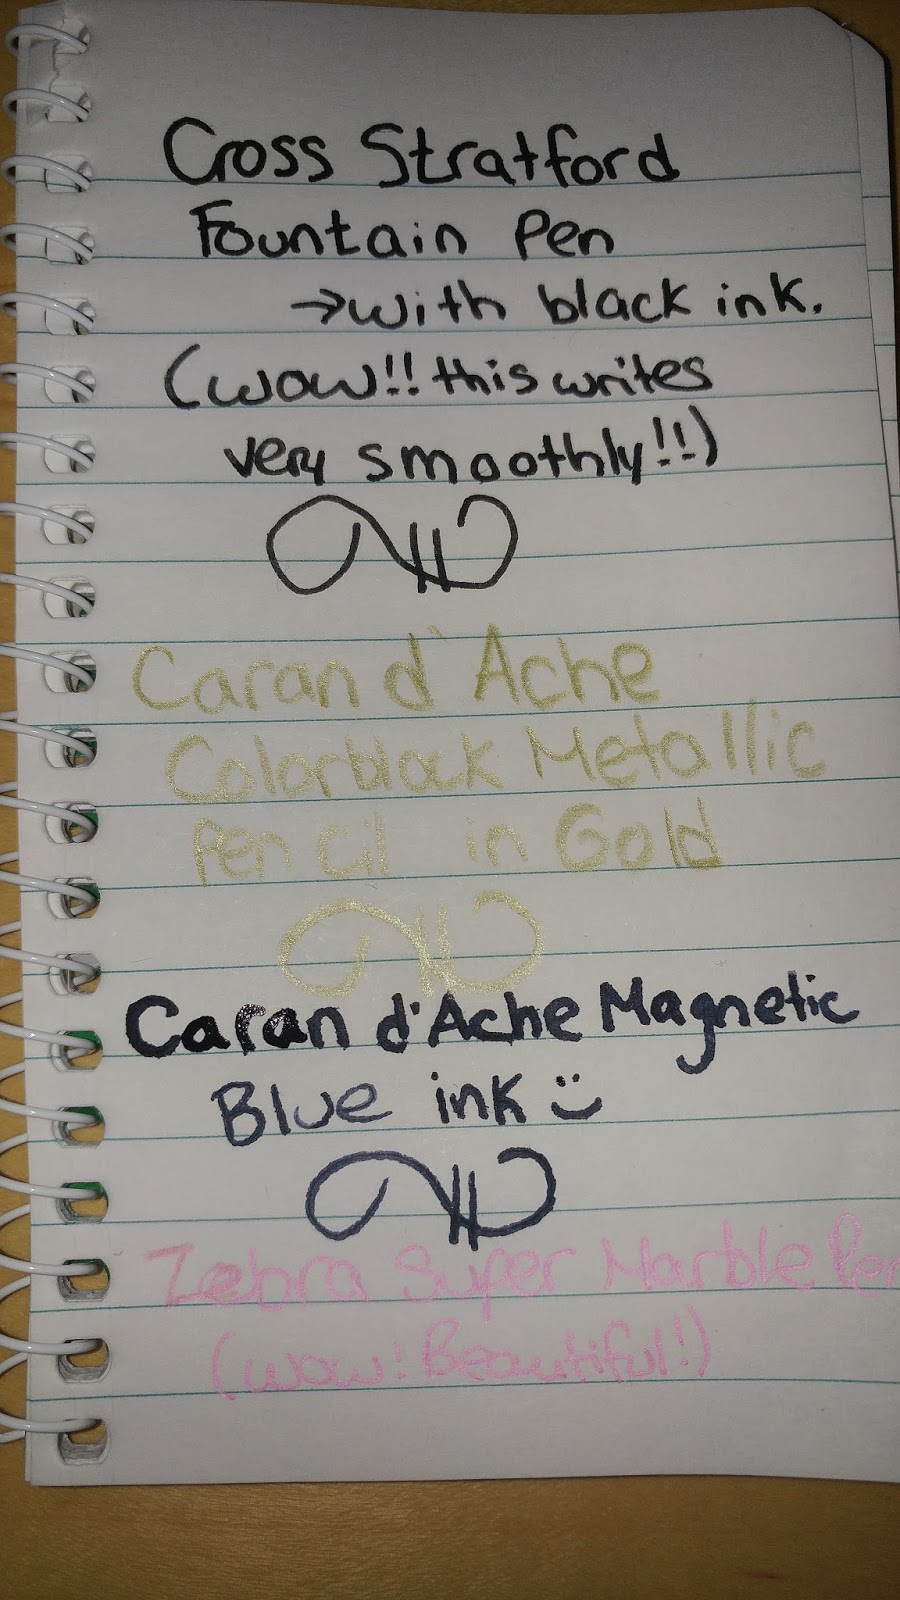 Cross Stratford
Fountain Pen
→with black ink.
(wow!! this writes
very smoothly!!)
Caran d'Ache
Colorblock Metallic
Pencil in Gold
Caran d'Ache Magnetic
Blue ink :)
Zebra Super Marble Pen
(wow! Beautiful!)